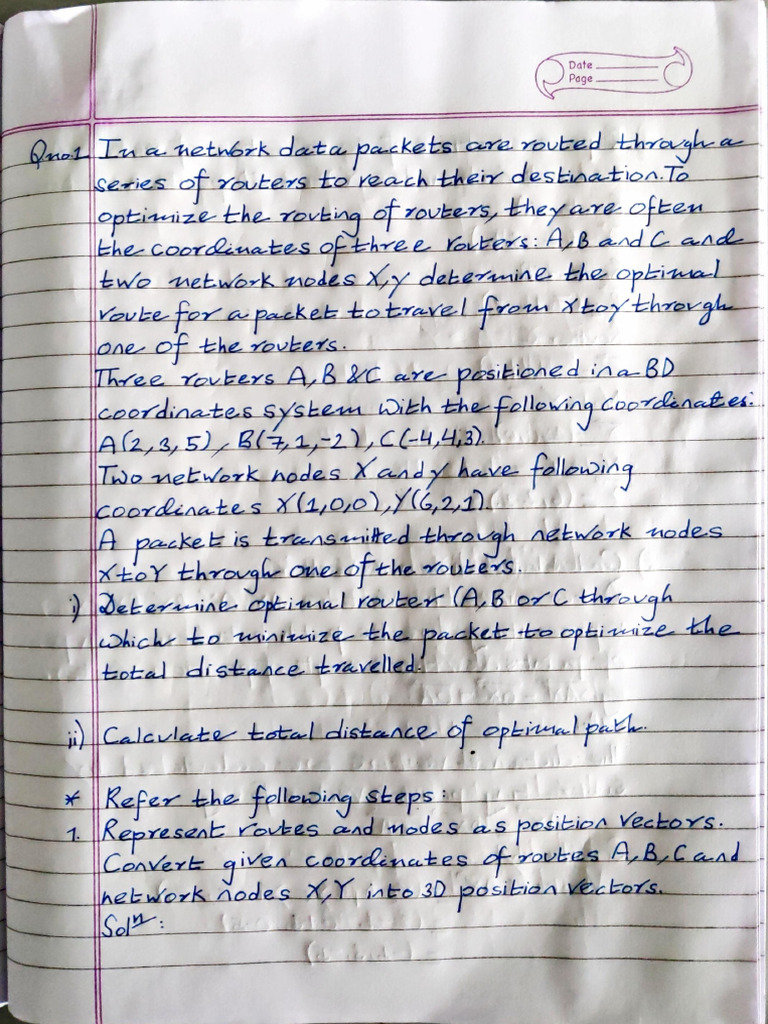 Date
Page
Qno.1 In a network data packets are routed through a
series of routers to reach their destination. To
optimize the routing of routers, they are often
the coordinates of three routers: A, B and C and
two network nodes X, y determine the optimal
route for a packet to travel from x to y through
one of the routers.
Three routers A, B & C are positioned in a BD
coordinates system with the following coordinates:
A(2,3,5), B(7,1,-2), C(-4,4,3).
Two network nodes X and y have following
coordinates X(1,0,0), Y(6,2,1).
A packet is transmitted through network nodes
X to Y through one of the routers.
i) Determine optimal router (A, B or C through
which to minimize the packet to optimize the
total distance travelled.
ii) Calculate total distance of optimal path.
* Refer the following steps:
1. Represent routes and nodes as position vectors.
Convert given coordinates of routes A, B, C and
network nodes X, Y into 3D position vectors.
Solⁿ: